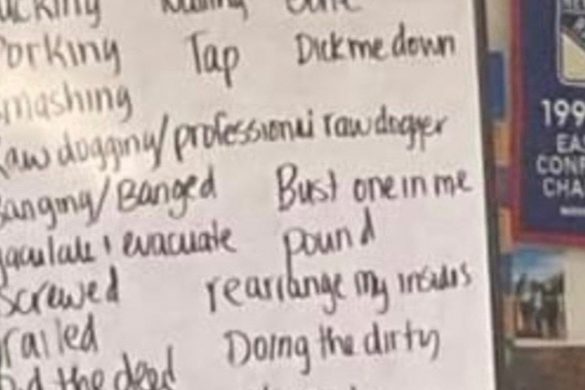 Dick me down
Porking Tap
smashing
Raw dogging/professional rawdogger
Banging/Banged Bust one in me
ejaculate & evacuate pound
Screwed rearrange my insides
railed Doing the dirty
the deed
199
EA
CON
CHA